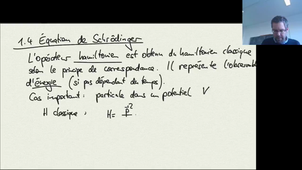 1.4 Équation de Schrödinger
L'opérateur hamiltonien est obtenu du hamiltonien classique
selon le principe de correspondance. Il représente l'observable
d'énergie (si pas dépendant du temps).
Cas important : particule dans un potentiel V
H classique : H = p²